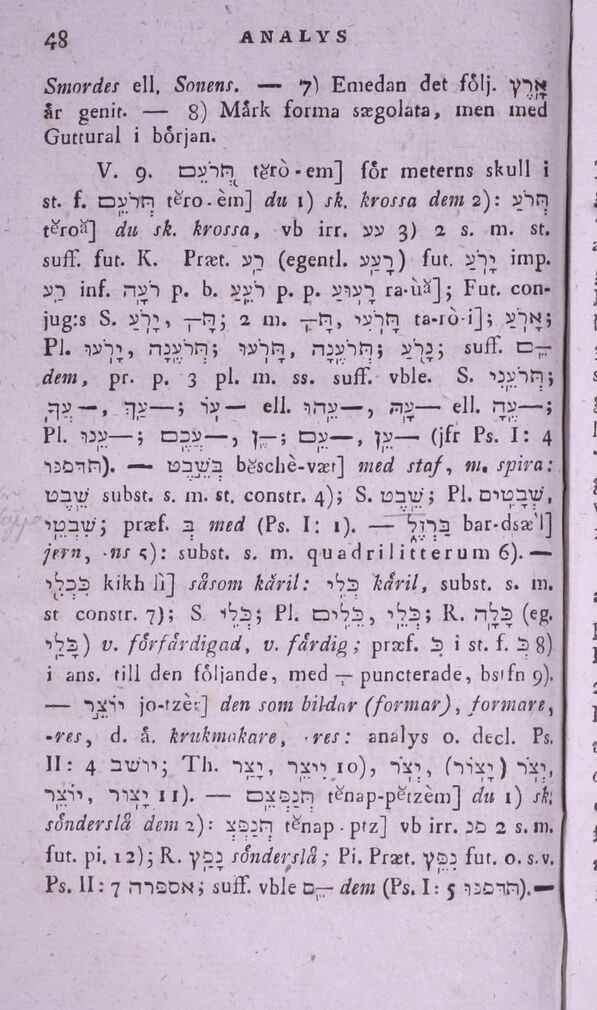 48 ANALYS
Smordes ell. Sonens. — 7) Emedan det följ. אָרֶץ
år genit. — 8) Mårk forma sægolata, men med
Guttural i början.
V. 9. תְּרֹעֵם tĕrò-em] för meterns skull i
st. f. תְּרֹעֵם tĕro-èm] du 1) sk. krossa dem 2): תְּרֹעַ
tĕroă] du sk. krossa, vb irr. עע 3) 2 s. m. st.
suff. fut. K. Præt. רַע (egentl. רָעַע) fut. יָרֹעַ imp.
רֹעַ inf. רֹעָה p. b. רֹעֵעַ p. p. רָעוּעַ ra-ùă]; Fut. con-
jug:s S. יָרֹעַ, תָּ–; 2 m. תָּ–, תָּרֹעִי ta-rò-i]; אָרֹעַ;
Pl. יָרֹעוּ, תְּרֹעֶנָה; תָּרֹעוּ, תְּרֹעֶנָה; נָרֹעַ; suff. ־ֵם
dem, pr. p. 3 pl. m. ss. suff. vble. S. תְּרֹעֵנִי;
—עֲךָ, —עֵךְ; —עוֹ ell. —עֵהוּ, —עָהּ ell. —עֶהָ;
Pl. —עֵנוּ; —עֲכֶם, —ן; —עֵם, —עֵן (jfr Ps. I: 4
תדפנו). — בְּשֵׁבֶט bĕschè-væt] med staf, m. spira:
שֵׁבֶט subst. s. m. st. constr. 4); S. שֵׁבֶט; Pl. שְׁבָטִים,
שִׁבְטֵי; præf. בְּ med (Ps. I: 1). — בַּרְזֶל bar-dsæ'l]
jern, -ns 5): subst. s. m. quadrilitterum 6). —
כִּכְלִי kikh lì] såsom käril: כְּלִי käril, subst. s. m.
st constr. 7); S. כְּלִי; Pl. כֵּלִים, כְּלֵי; R. כָּלָה (eg.
כָּלַי) v. förfärdigad, v. färdig; præf. כִּ i st. f. כְּ 8)
i ans. till den följande, med ־ְ puncterade, bstfn 9).
— יוֹצֵר jo-tzèr] den som bildar (formar), formare,
-res, d. ä. krukmakare, -res: analys o. decl. Ps.
II: 4 יושב; Th. יָצַר, יִיצַר 10), יְצֹר, (יָצוֹר) יְצֹר,
יוֹצֵר, יָצוּר 11). — תְּנַפְּצֵם tĕnap-pĕtzèm] du 1) sk.
sönderslå dem 2): תְּנַפֵּץ tĕnap-ptz] vb irr. פנ 2 s. m.
fut. pi. 12); R. נָפַץ sönderslå; Pi. Præt. נִפֵּץ fut. o. s. v.
Ps. II: 7 אספרה; suff. vble ־ֵם dem (Ps. I: 5 תדפנו). —